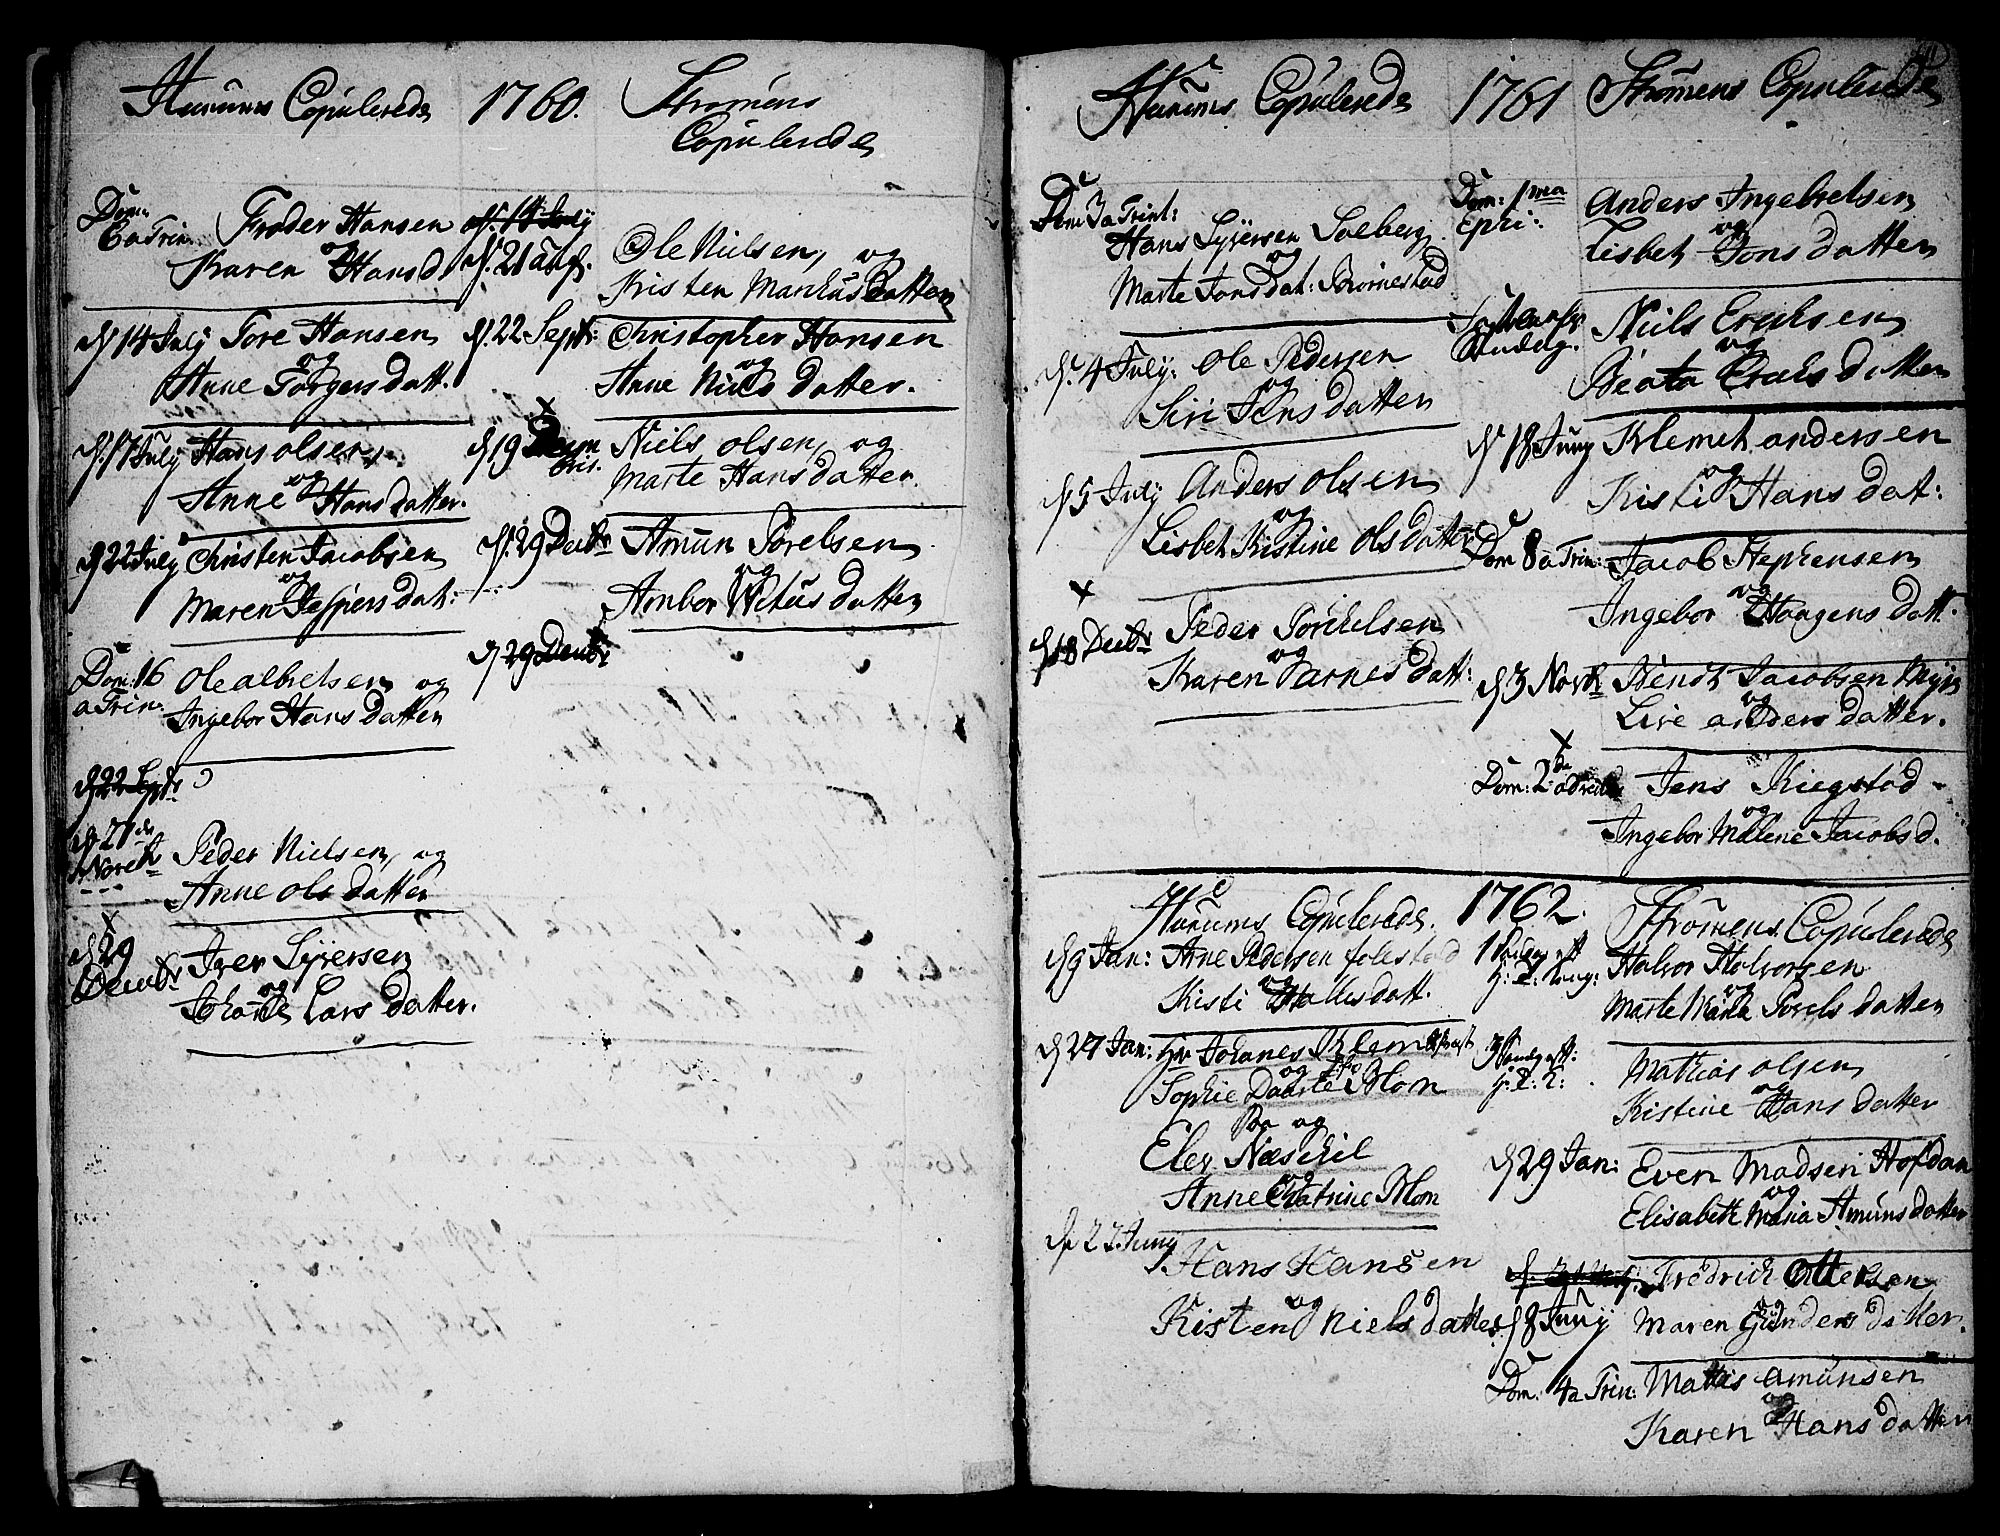 Hurums Copulerede
1760.
Strömens
Copulerede
Dom.
6 a Trin. Froder Hansen
og
Karen Hansd.
d. 14 July Tore Hansen
og
Anne Torgers datt.
d. 17 July Hans olsen
og
Anne Hans datter.
d. 22 July Christen Jacobsen
og
Maren Jespers dat:
Dom. 16
a Trin. Ole albretsen og
Ingebor Hans datter
d. 22 Septr
d. 27de
Novembr Peder Nielsen, og
Anne ols datter
d. 29
Decembr Iver Syversen
og
Lars datter.
d. 14 July
d. 21 aug. Ole Nielsen, og
Kisten Marchus datter
d. 22 Sept: Christopher Hansen
og
Anne Niels datter.
d. 19 Niels olsen, og
Marte Hans datter.
d. 29 Decbr Amun Torelsen
og
Ambor Vetus datter
d. 29 Decbr:
Hurums Copulerede
1761
Strömens Copulerede
Dom 3 a Trint:
Hans Syversen Solberg
og
Marte Jons dat:
d. 4 July: Ole Pedersen
og
Siri Jens datter
d. 5 July Anders olsen
og
Lisbet Kistine ols datter
d. 18 Decbr Peder Torchelsen
og
Karen arnes datt:
Dom: 1ma
Epi: Anders Ingebretsen
og
Lisbet Jons datter
Niels Eriksen
og
Beata Eriks datter
d. 18 Juny Klemet andersen
og
Kisti Hans dat:
Dom 8 a Trin: Jacob Stephensen
og
Ingebor Haagens datt.
d. 3 Novbr Bendt Jacobsen
og
Live anders datter.
Dom: 2 Jens Kiegstad
og
Ingebor Malene Jacobs d.
Hurums Copulerede.
1762.
Strömens Copulerede
d. 9 Jan: Arne Pedersen folestad
og
Kisti Halles datt.
d. 27 Jan: Hr Johanes Klem
og
Sophie Dorte Blom
og
Elev Næskil
og
Anne Catrine Blom
d. 22 Juny
Hans Hansen
og
Kisten Niels datter
Halvor Halvorsen
og
Marte Maria Torels datter
Mathias olsen
og
Kistine Hans datter
d. 29 Jan: Even Madsen Hofdan
og
Elisabeth Maria Amuns datter
Fredrich Ottersen
og
d. 8 Juny Maren Gunders datter.
Dom: 4 a Trin: Mattis amunsen
og
Karen Hans datter